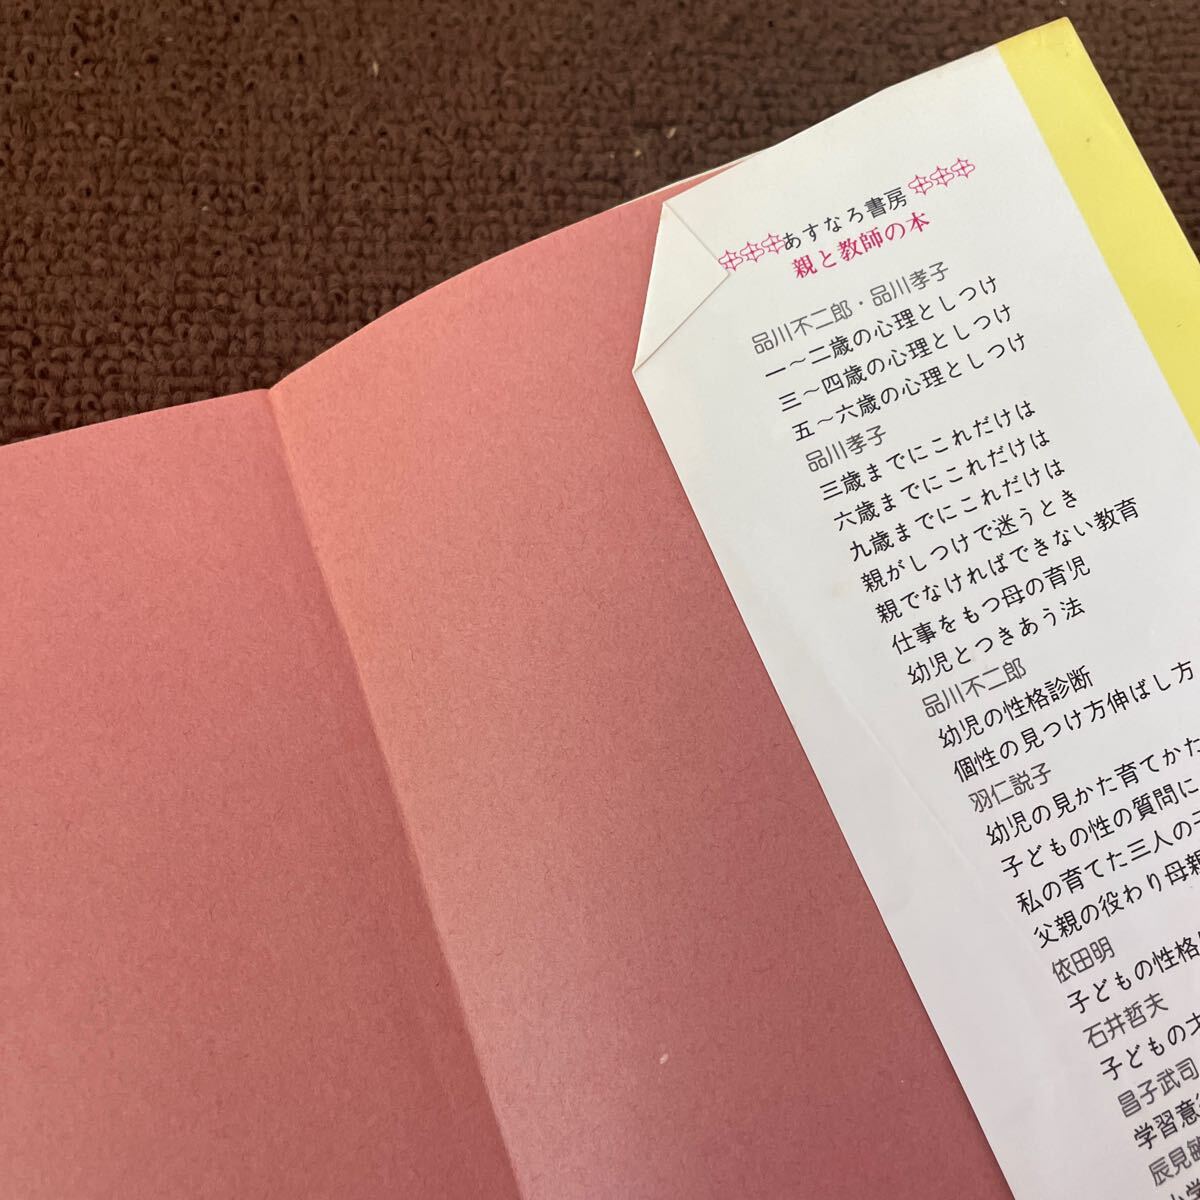 あすなろ書房
親と教師の本
品川不二郎・品川孝子
一〜二歳の心理としつけ
三〜四歳の心理としつけ
五〜六歳の心理としつけ
品川孝子
三歳までにこれだけは
六歳までにこれだけは
九歳までにこれだけは
親がしつけで迷うとき
親でなければできない教育
仕事をもつ母の育児
幼児とつきあう法
品川不二郎
幼児の性格診断
個性の見つけ方伸ばし方
羽仁説子
幼児の見かた育てかた
子どもの性の質問に
私の育てた三人の子
父親の役わり母親
依田明
子どもの性格
石井哲夫
子どもの
昌子武司
学習意
辰見敏
小学